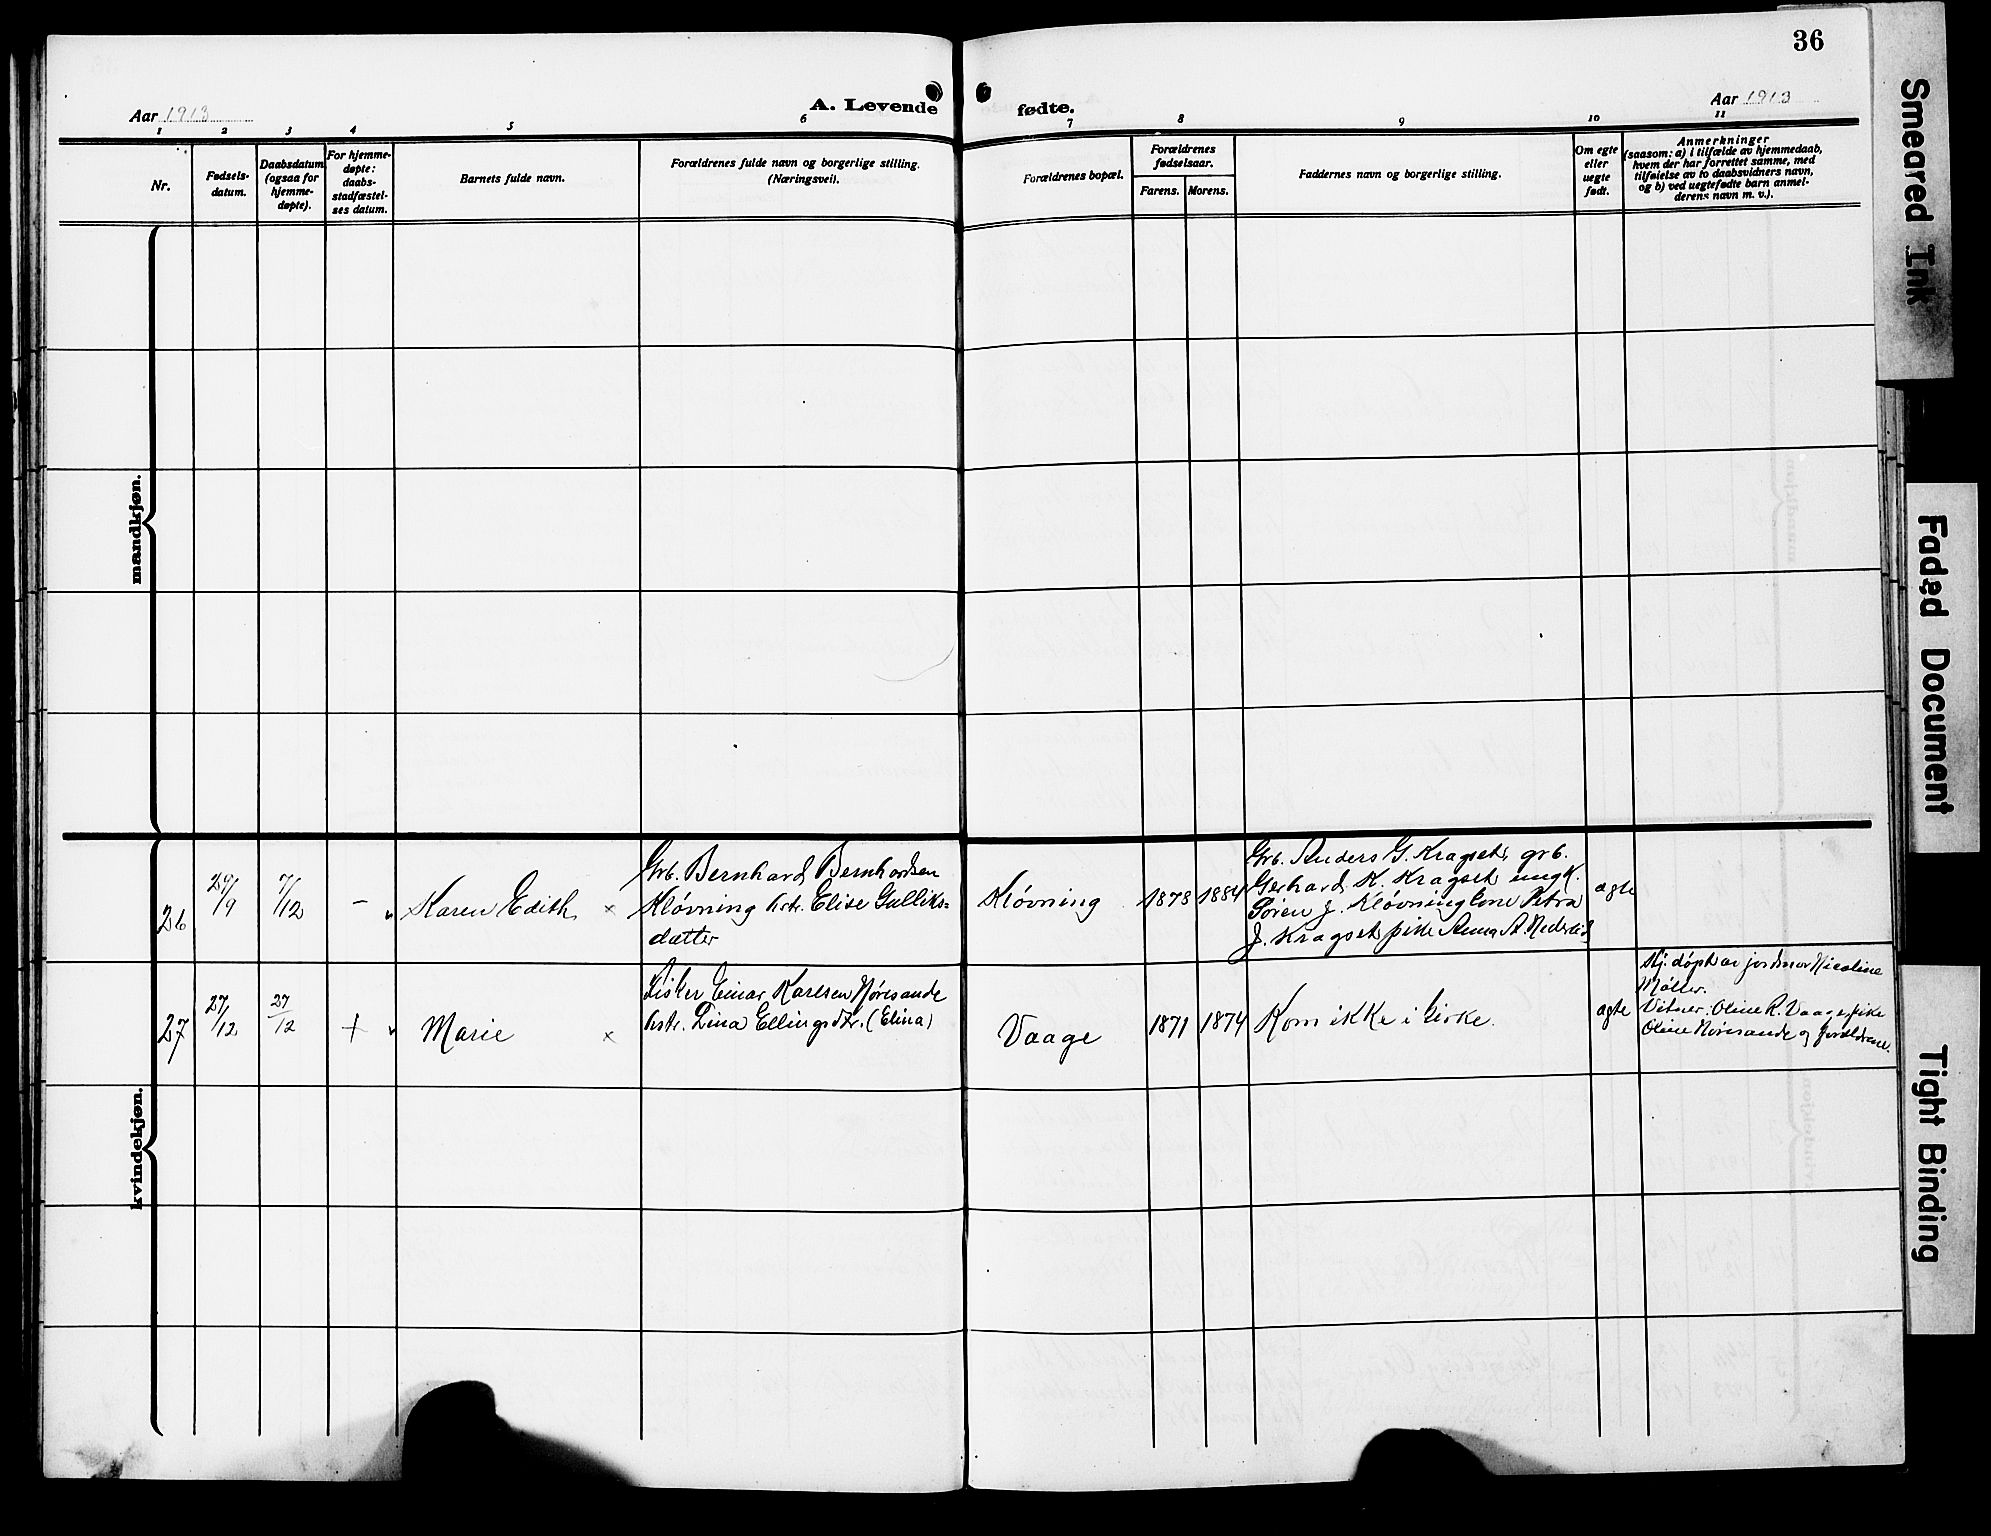 36
Aar 1913
A. Levende
fødte.
Aar 1913
1 2 3 4 5 6 7 8 9 10 11
Nr.
Fødsels-
datum.
Daabsdatum
(ogsaa for
hjemme-
døpte).
For hjemme-
døpte:
daabs-
stadfæstel-
ses datum.
Barnets fulde navn.
Forældrenes fulde navn og borgerlige stilling.
(Næringsvei).
Forældrenes bopæl.
Forældrenes
fødselsaar.
Farens. Morens.
Faddernes navn og borgerlige stilling.
Om egte
eller
uegte
født.
Anmerkninger
(saasom: a) i tilfælde av hjemmedaab,
hvem der har forrettet samme, med
tilføielse av to daabsvidners navn,
og b) ved uegtefødte barn anmel-
derens navn m. v.).
mandkjøn.
kvindekjøn.
26
29/9
7/12
–
Karen Edith
Grb. Bernhard Bernhardsen
Kløvning hstr. Elise Gulliks=
datter
Kløvning
1878
1884
Grb. Anders G. Kragset, grb.
Gerhard K. Kragset ungk.
Søren J. Kløvning kone Petra
J. Kragset pike Anna A.
egte
27
27/12
27/12
+
Marie
Fisker Einar Karlsen Nøresande
hstr. Lina Ellingsdtr. (Elina)
Vaage
1871
1874
Kom ikke i kirke.
egte
Hj. døpt av jordmor Nicoline
Møller.
Vitner: Oline R. Vaage, pike
Oline Nøresande og forældrene.
Smeared Ink
Faded Document
Tight Binding